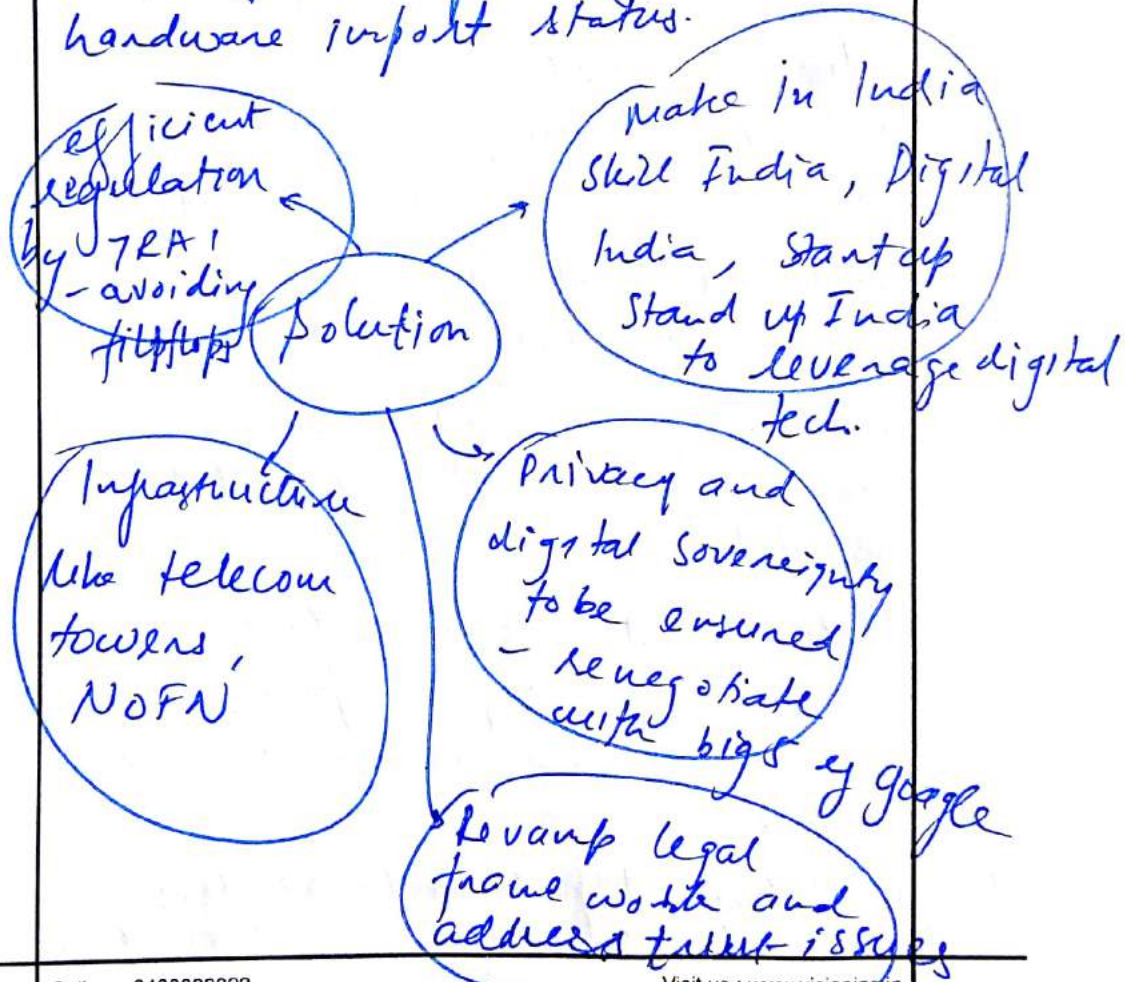 hardware import status.
efficient
regulation
by TRAI
- avoiding
flipflops
Solution
Make in India
Skill India, Digital
India, Startup
Stand up India
to leverage digital
tech.
Infrastructure
like telecom
towers,
NOFN
Privacy and
digital sovereignty
to be ensured
- renegotiate
with bigs eg google
Revamp legal
frame work and
address trust issues